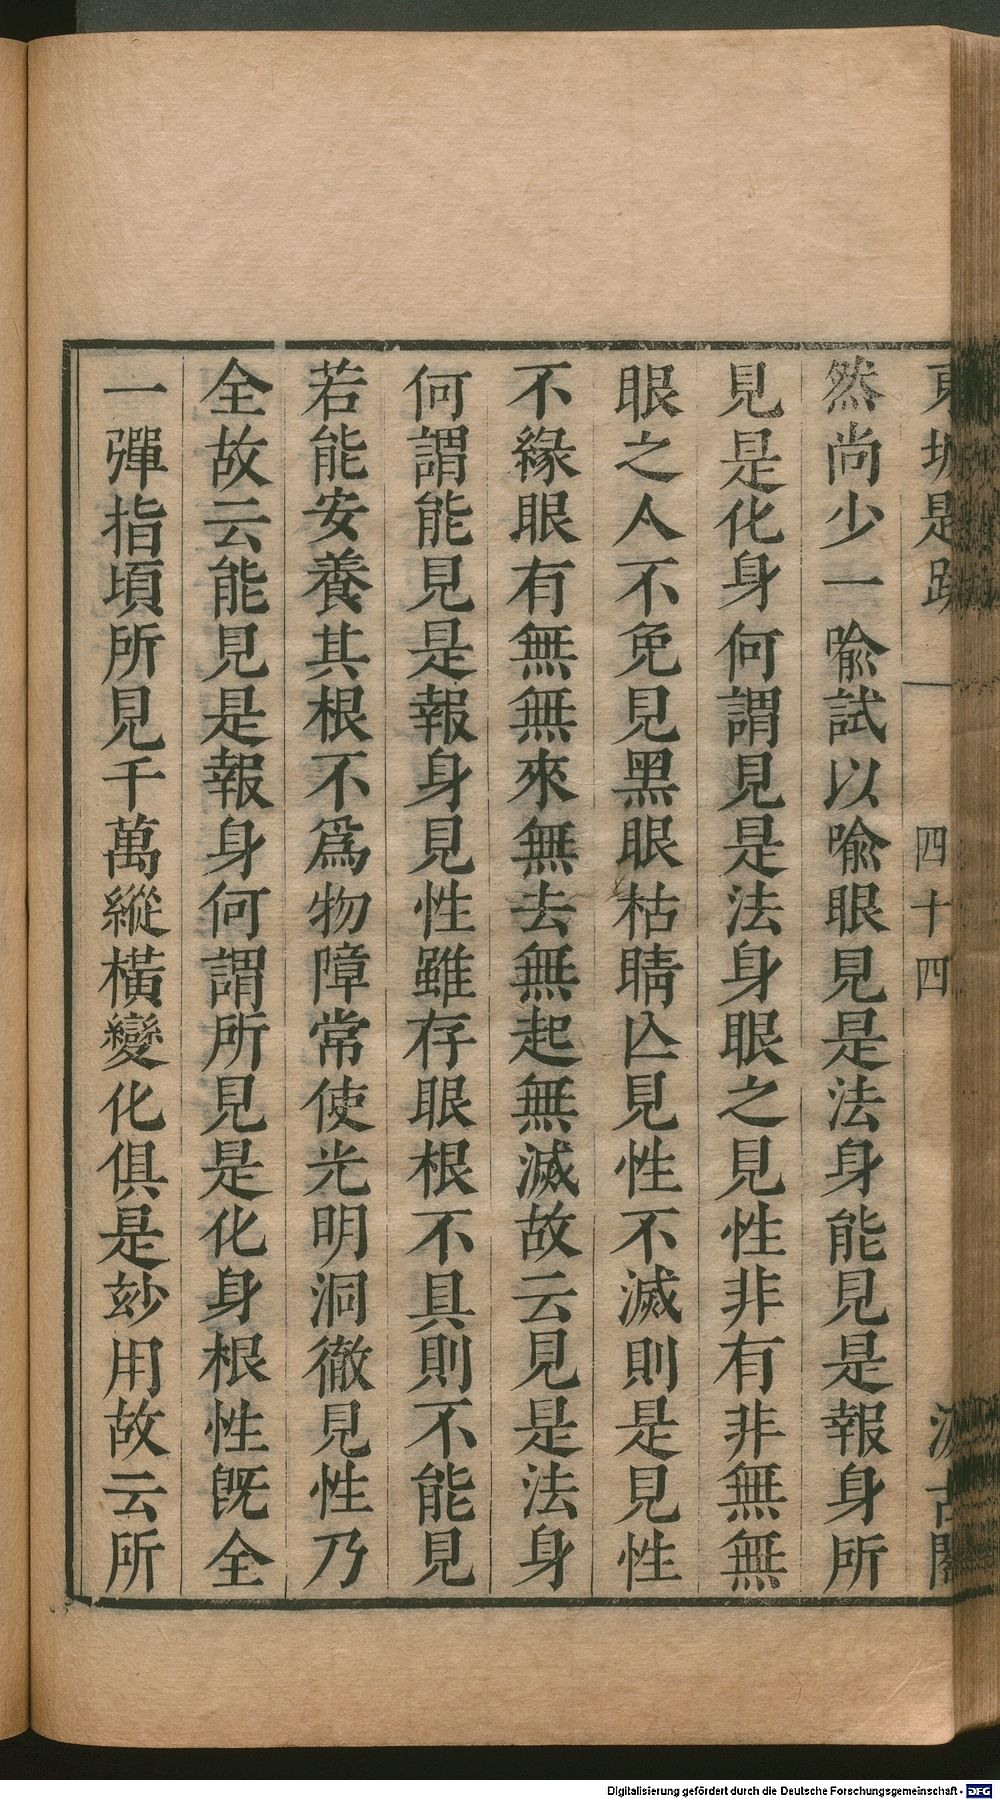 東坡是跋 一 四十四 汲古閣
然尚少一喩試以喩眼見是法身能見是報身所
見是化身何謂見是法身眼之見性非有非無無
眼之人不免見黑眼枯睛亾見性不滅則是見性
不緣眼有無無來無去無起無滅故云見是法身
何謂能見是報身見性雖存眼根不具則不能見
若能安養其根不爲物障常使光明洞徹見性乃
全故云能見是報身何謂所見是化身根性既全
一彈指頃所見千萬縱橫變化俱是玅用故云所
Digitalisierung gefördert durch die Deutsche Forschungsgemeinschaft - DFG